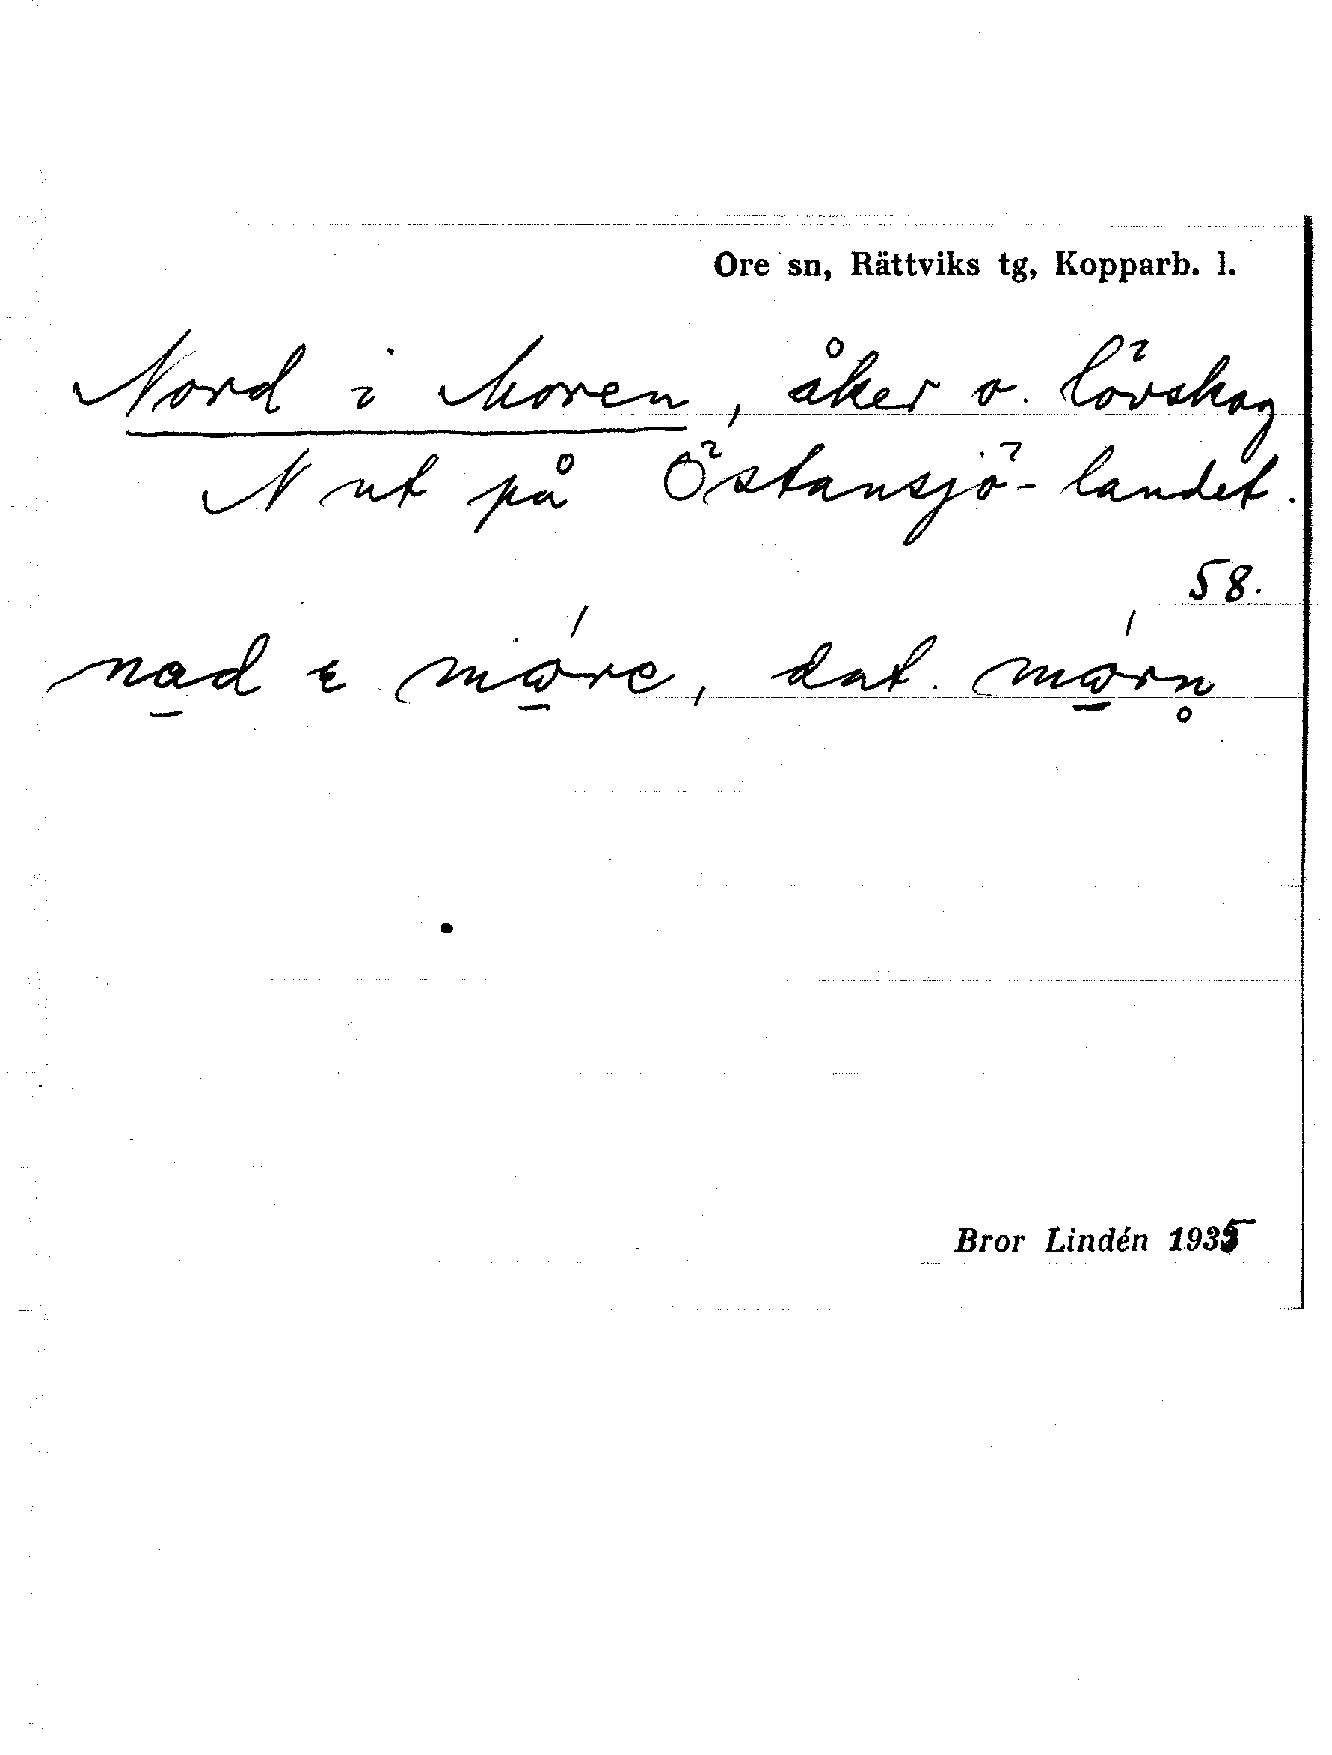 Ore sn, Rättviks tg, Kopparb. l.
Nord i Moren, åker o. lövskog
N ut på Östansjö-landet.
58.
nad
dat.
Bror Lindén 1935